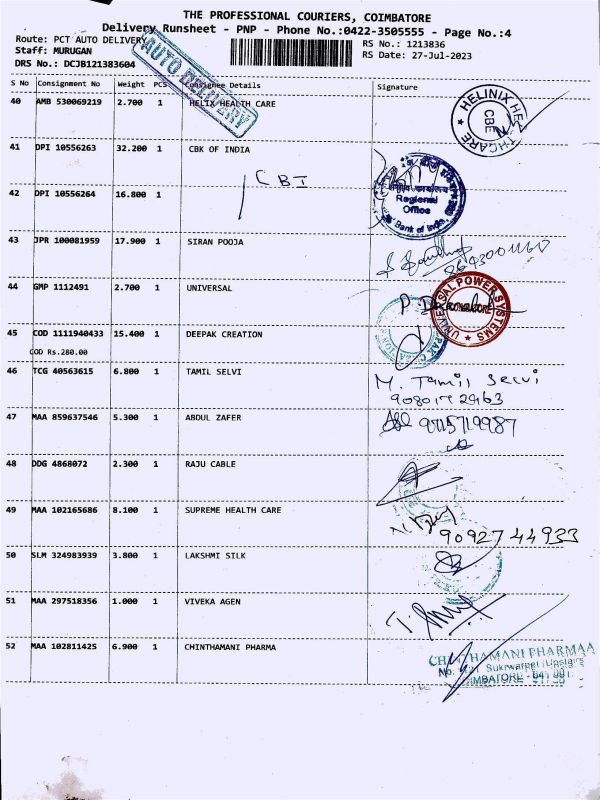 THE PROFESSIONAL COURIERS, COIMBATORE
Delivery Runsheet - PNP - Phone No.:0422-3505555 - Page No.:4
Route: PCT AUTO DELIVERY
RS No.: 1213836
Staff: MURUGAN
RS Date: 27-Jul-2023
DRS No.: DCJB121383604
AUTO DELIVERY
S No Consignment No Weight PCS Consignee Details Signature
40 AMB 530069219 2.700 1 HELIX HEALTH CARE
HELINIX HEALTHCARE
CBE
41 DPI 10556263 32.200 1 CBK OF INDIA
CBI
Regional
Office
Bank of India
42 DPI 10556264 16.800 1
43 JPR 100081959 17.900 1 SIRAN POOJA
44 GMP 1112491 2.700 1 UNIVERSAL
UNIVERSAL POWER SYSTEMS
45 COD 1111940433 15.400 1 DEEPAK CREATION
COD Rs.280.00
46 TCG 40563615 6.800 1 TAMIL SELVI
M. Tamil Selvi
9080172963
47 MAA 859637546 5.300 1 ABDUL ZAFER
9715719987
48 DDG 4868072 2.300 1 RAJU CABLE
49 MAA 102165686 8.100 1 SUPREME HEALTH CARE
9092744933
50 SLM 324983939 3.800 1 LAKSHMI SILK
51 MAA 297518356 1.000 1 VIVEKA AGEN
52 MAA 102811425 6.900 1 CHINTHAMANI PHARMA
CHINTHAMANI PHARMAA